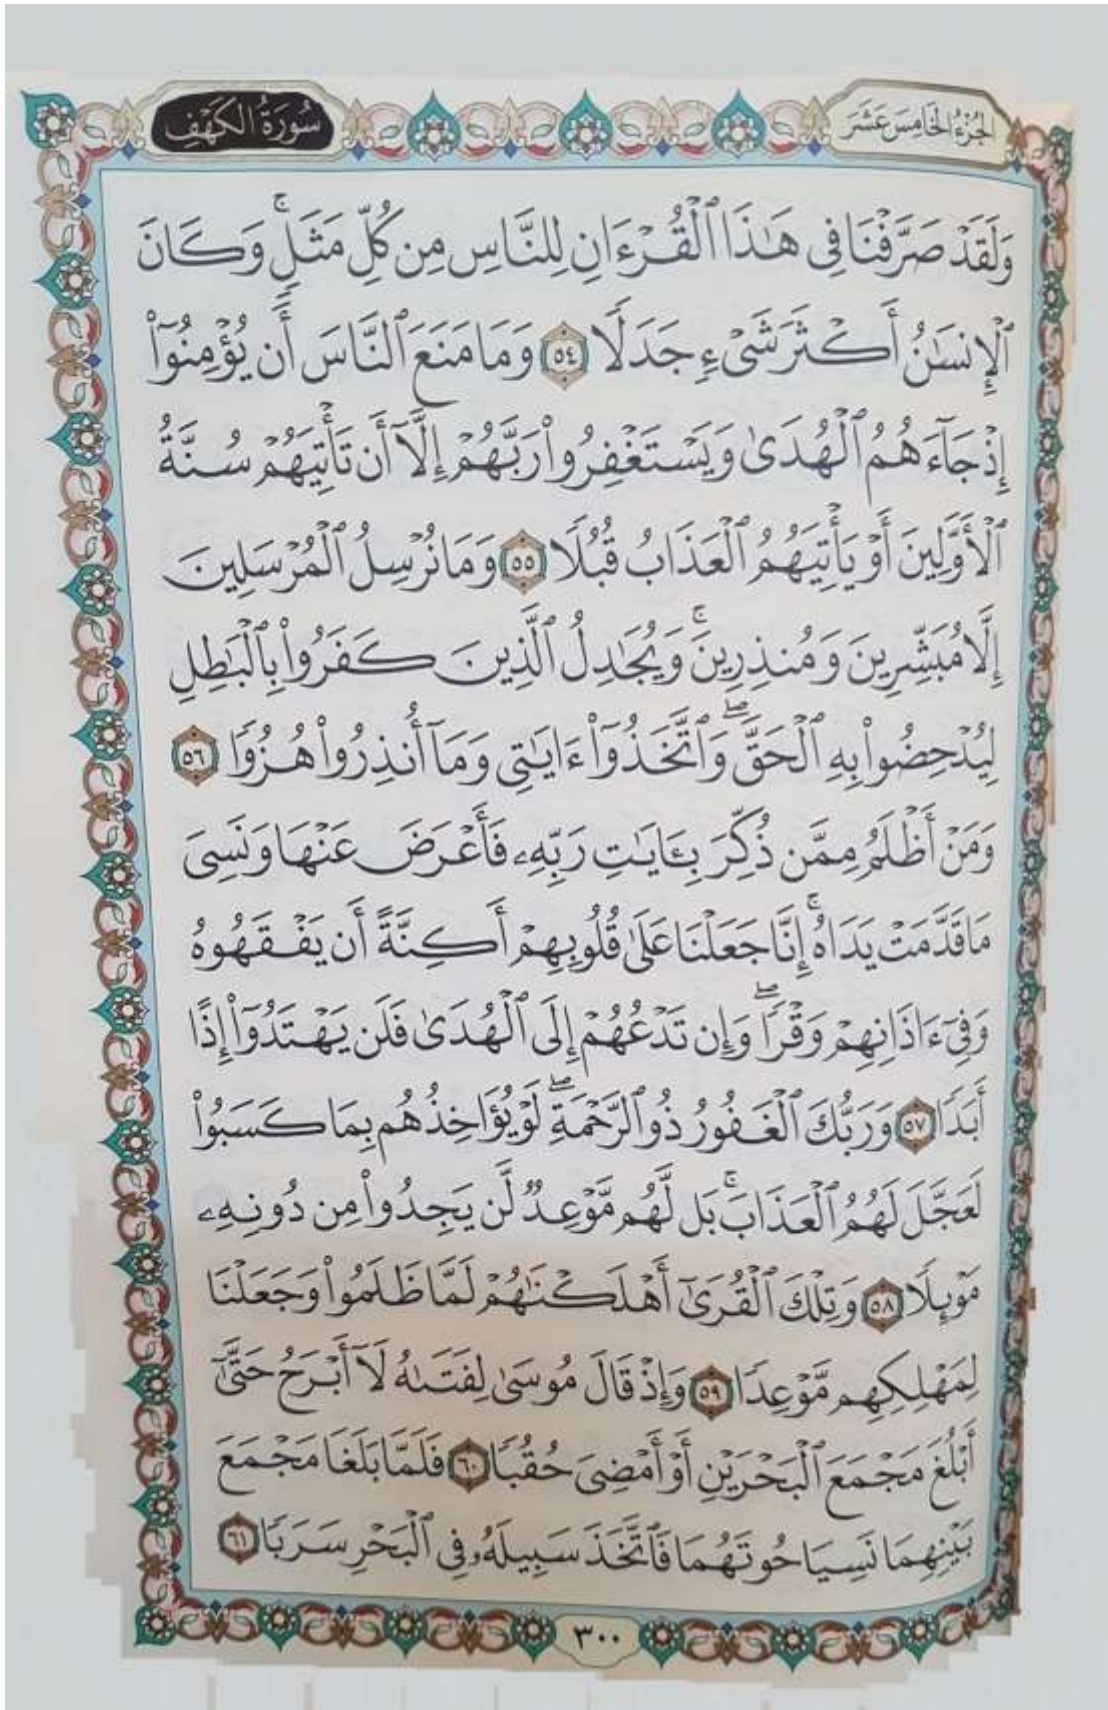 الجُزْءُ الخَامِسَ عَشَرَ
سُورَةُ الكَهْفِ
وَلَقَدْ صَرَّفْنَا فِى هَٰذَا ٱلْقُرْءَانِ لِلنَّاسِ مِن كُلِّ مَثَلٍۢ ۚ وَكَانَ
ٱلْإِنسَٰنُ أَكْثَرَ شَىْءٍۢ جَدَلًۭا ٥٤ وَمَا مَنَعَ ٱلنَّاسَ أَن يُؤْمِنُوٓا۟
إِذْ جَآءَهُمُ ٱلْهُدَىٰ وَيَسْتَغْفِرُوا۟ رَبَّهُمْ إِلَّآ أَن تَأْتِيَهُمْ سُنَّةُ
ٱلْأَوَّلِينَ أَوْ يَأْتِيَهُمُ ٱلْعَذَابُ قُبُلًۭا ٥٥ وَمَا نُرْسِلُ ٱلْمُرْسَلِينَ
إِلَّا مُبَشِّرِينَ وَمُنذِرِينَ ۚ وَيُجَٰدِلُ ٱلَّذِينَ كَفَرُوا۟ بِٱلْبَٰطِلِ
لِيُدْحِضُوا۟ بِهِ ٱلْحَقَّ ۖ وَٱتَّخَذُوٓا۟ ءَايَٰتِى وَمَآ أُنذِرُوا۟ هُزُوًۭا ٥٦
وَمَنْ أَظْلَمُ مِمَّن ذُكِّرَ بِـَٔايَٰتِ رَبِّهِۦ فَأَعْرَضَ عَنْهَا وَنَسِىَ
مَا قَدَّمَتْ يَدَاهُ ۚ إِنَّا جَعَلْنَا عَلَىٰ قُلُوبِهِمْ أَكِنَّةً أَن يَفْقَهُوهُ
وَفِىٓ ءَاذَانِهِمْ وَقْرًۭا ۖ وَإِن تَدْعُهُمْ إِلَى ٱلْهُدَىٰ فَلَن يَهْتَدُوٓا۟ إِذًا
أَبَدًۭا ٥٧ وَرَبُّكَ ٱلْغَفُورُ ذُو ٱلرَّحْمَةِ ۖ لَوْ يُؤَاخِذُهُم بِمَا كَسَبُوا۟
لَعَجَّلَ لَهُمُ ٱلْعَذَابَ ۚ بَل لَّهُم مَّوْعِدٌۭ لَّن يَجِدُوا۟ مِن دُونِهِۦ
مَوْئِلًۭا ٥٨ وَتِلْكَ ٱلْقُرَىٰٓ أَهْلَكْنَٰهُمْ لَمَّا ظَلَمُوا۟ وَجَعَلْنَا
لِمَهْلِكِهِم مَّوْعِدًۭا ٥٩ وَإِذْ قَالَ مُوسَىٰ لِفَتَىٰهُ لَآ أَبْرَحُ حَتَّىٰٓ
أَبْلُغَ مَجْمَعَ ٱلْبَحْرَيْنِ أَوْ أَمْضِىَ حُقُبًۭا ٦٠ فَلَمَّا بَلَغَا مَجْمَعَ
بَيْنِهِمَا نَسِيَا حُوتَهُمَا فَٱتَّخَذَ سَبِيلَهُۥ فِى ٱلْبَحْرِ سَرَبًۭا ٦١
٣٠٠